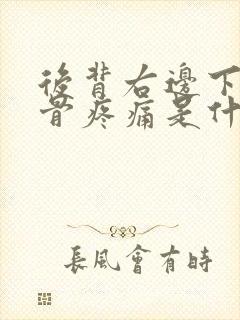 後背右邊下
骨疼痛是什
長風會有時